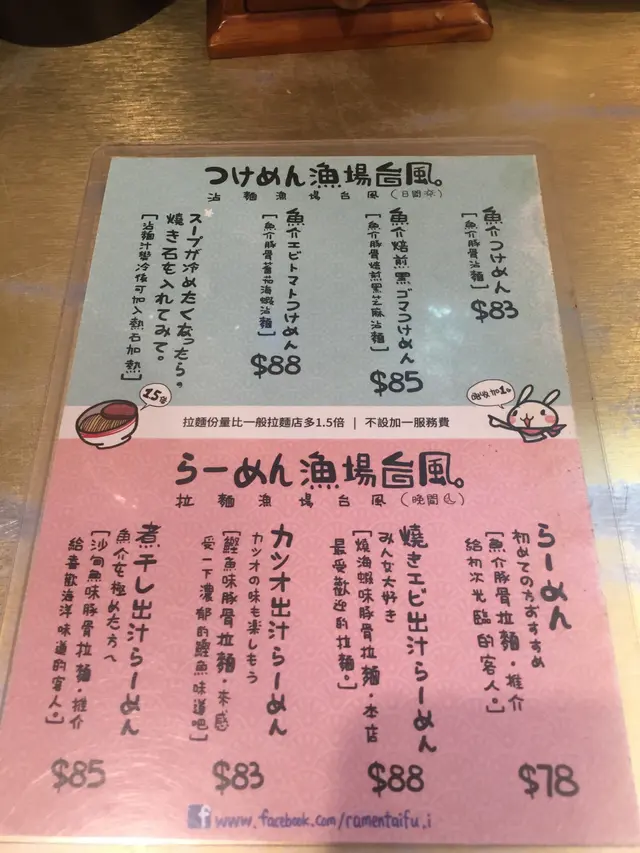 つけめん漁場台風。
沾麵漁場台風(日間☼)
魚介つけめん
[魚介豚骨沾麵]
$83
魚介焙煎黒ゴマつけめん
[魚介豚骨焙煎黑芝麻沾麵]
$85
魚介エビトマトつけめん
[魚介豚骨蕃茄海蝦沾麵]
$88
スープが冷めたくなったら。
焼き石を入れてみて。
[沾麵汁變冷後可加入熱石加熱]
1.5倍
拉麵份量比一般拉麵店多1.5倍 | 不設加一服務費
らーめん漁場台風。
拉麵漁場台風(晚間☾)
らーめん
初めての方おすすめ
[魚介豚骨拉麵・推介
給初次光臨的客人。]
$78
焼きエビ出汁らーめん
みんな大好き
[燒海蝦味豚骨拉麵・本店
最受歡迎的拉麵。]
$88
カツオ出汁らーめん
カツオの味も楽しもう
[鰹魚味豚骨拉麵・來感
受一下濃郁的鰹魚味道吧]
$83
煮干し出汁らーめん
魚介を極めた方へ
[沙甸魚味豚骨拉麵・推介
給喜歡海洋味道的客人。]
$85
f www.facebook.com/ramentaifu.i